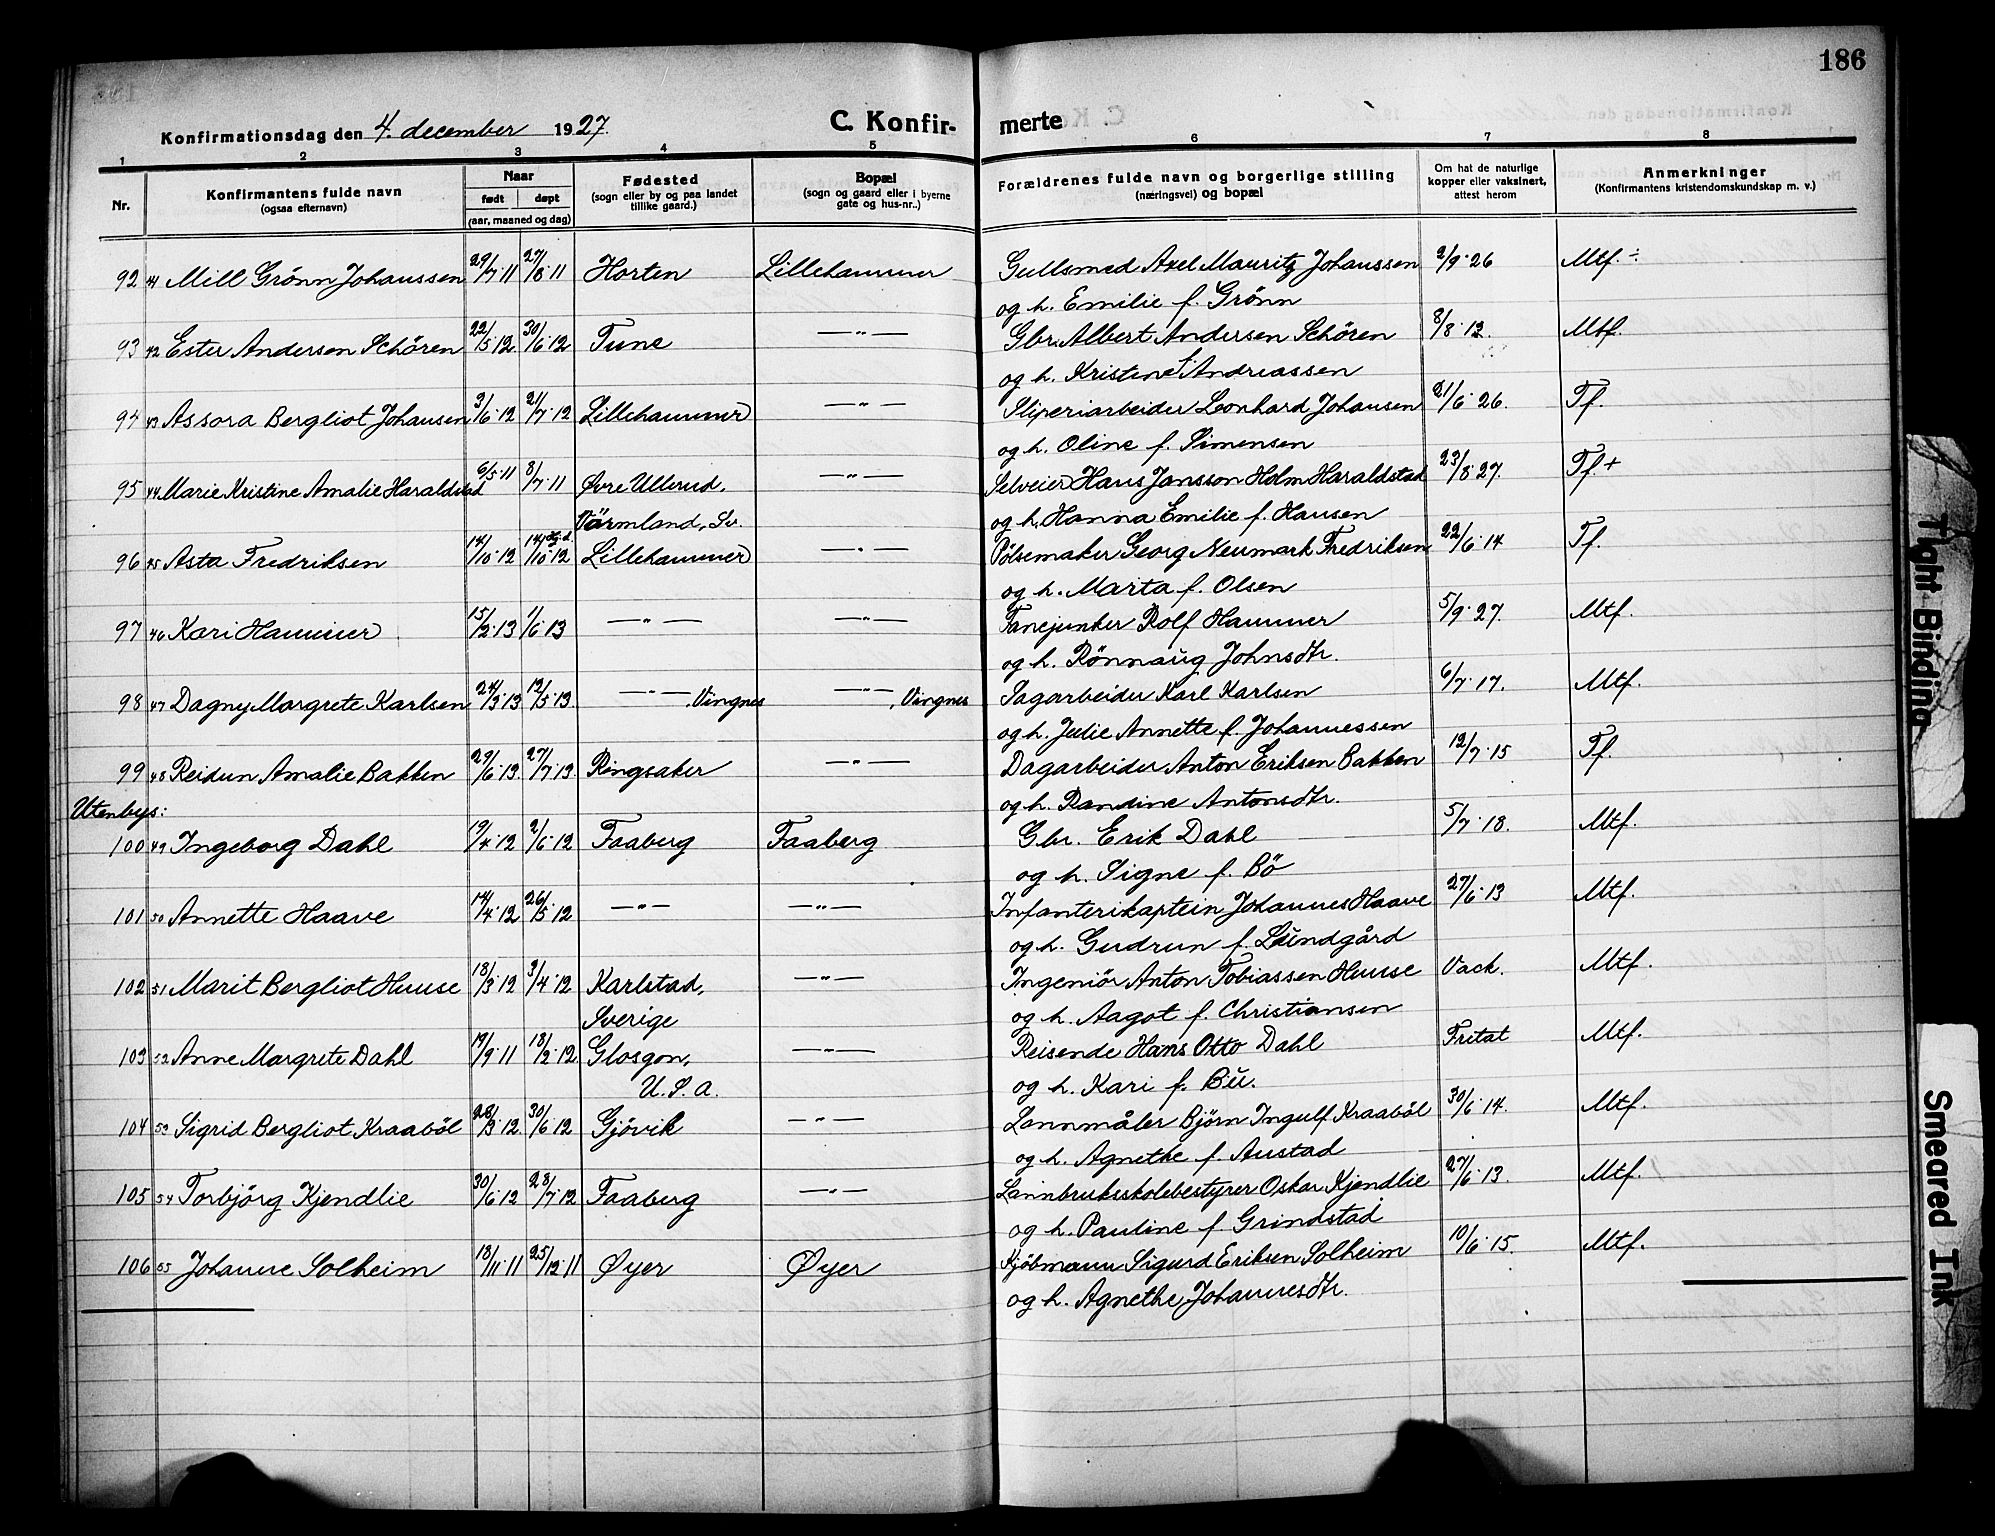 186
Konfirmationsdag den 4. december 1927.
C. Konfir-
merte
1 2 3 4 5 6 7 8
Nr.
Konfirmantens fulde navn
(ogsaa efternavn)
Naar
født døpt
(aar, maaned og dag)
Fødested
(sogn eller by og paa landet
tillike gaard.)
Bopæl
(sogn og gaard eller i byerne
gate og hus-nr..)
Forældrenes fulde navn og borgerlige stilling
(næringsvei) og bopæl
Om hat de naturlige
kopper eller vaksinert,
attest herom
Anmerkninger
(Konfirmantens kristendomskundskap m. v.)
92 41 Mill Grönn Johanssen 29/7·11 27/8·11 Horten Lillehammer Gullsmed Axel Mauritz Johanssen 2/9·26 Mtf. ÷
og h. Emilie f. Grönn
93 42 Ester Andersen Schören 22/5·12 30/6·12 Tune —"— Gbr. Albert Andersen Schören 8/8·12. Mtf.
og h. Kristine f. Andreassen
94 43 Assora Bergliot Johansen 3/6·12 21/7·12 Lillehammer —"— Sliperiarbeider Leonhard Johansen 21/6·26. Tf.
og h. Oline f. Simensen
95 44 Marie Kristine Amalie Haraldstad 6/5·11 8/7·11 Øvre Ullerud, —"— Selveier Hans Jansson Holm Haraldstad 23/8·27. Tf +
Värmland, Sv. og h. Hanna Emilie f. Hansen
96 45 Asta Fredriksen 14/10·12 14/10·12 Lillehammer —"— Pölsemaker Georg Neumark Fredriksen 22/6·14 Tf.
og h. Marta f. Olsen
97 46 Kari Hammer 15/2·13 1/6·13 —"— —"— Fanejunker Rolf Hammer 5/9·27. Mtf.
og h. Rönnaug Johnsdtr.
98 47 Dagny Margrete Karlsen 24/3·13 12/5·13. —"—, Vingnes —"—, Vingnes Sagarbeider Karl Karlsen 6/7·17. Mtf.
og h. Julie Annette f. Johannessen
99 48 Reidun Amalie Bakken 29/6·13. 27/7·13 Ringsaker —"— Dagarbeider Anton Eriksen Bakken 12/7·15 Tf.
og h. Randine Antonsdtr.
Utenbys:
100 49 Ingeborg Dahl 19/4·12 2/6·12 Faaberg Faaberg Gbr. Erik Dahl 5/7·18. Mtf.
og h. Signe f. Bö
101 50 Annette Haave 14/4·12 26/5·12 —"— —"— Infanterikaptein Johannes Haave 27/6·13 Mtf.
og h. Gudrun f. Lundgård
102 51 Marit Bergliot Huuse 18/3·12 3/4·12 Karlstad, —"— Ingeniör Anton Tobiassen Huuse Vack. Mtf.
Sverige og h. Aagot f. Christiansen
103 52 Anne Margrete Dahl 19/9·11 18/2·12. Glasgon, —"— Reisende Hans Otto Dahl Fritat Mtf.
U.S.a. og h. Kari f. Bu.
104 53 Sigrid Bergliot Kraaböl 28/3·12. 30/6·12 Gjövik —"— Lannmåler Björn Ingulf Kraaböl 30/6·14. Mtf.
og h. Agnethe f. Austad
105 54 Torbjörg Kjendlie 30/6·12 28/7·12 Faaberg —"— Lannbruksskolebestyrer Oskar Kjendlie 27/6·13. Mtf.
og h. Pauline f. Grindstad
106 55 Johanne Solheim 18/11·11 25/12·11 Øyer Øyer Kjöbmann Sigurd Eriksen Solheim 10/6·15. Mtf.
og h. Agnethe Johannesdtr.
Tight Binding
Smeared Ink